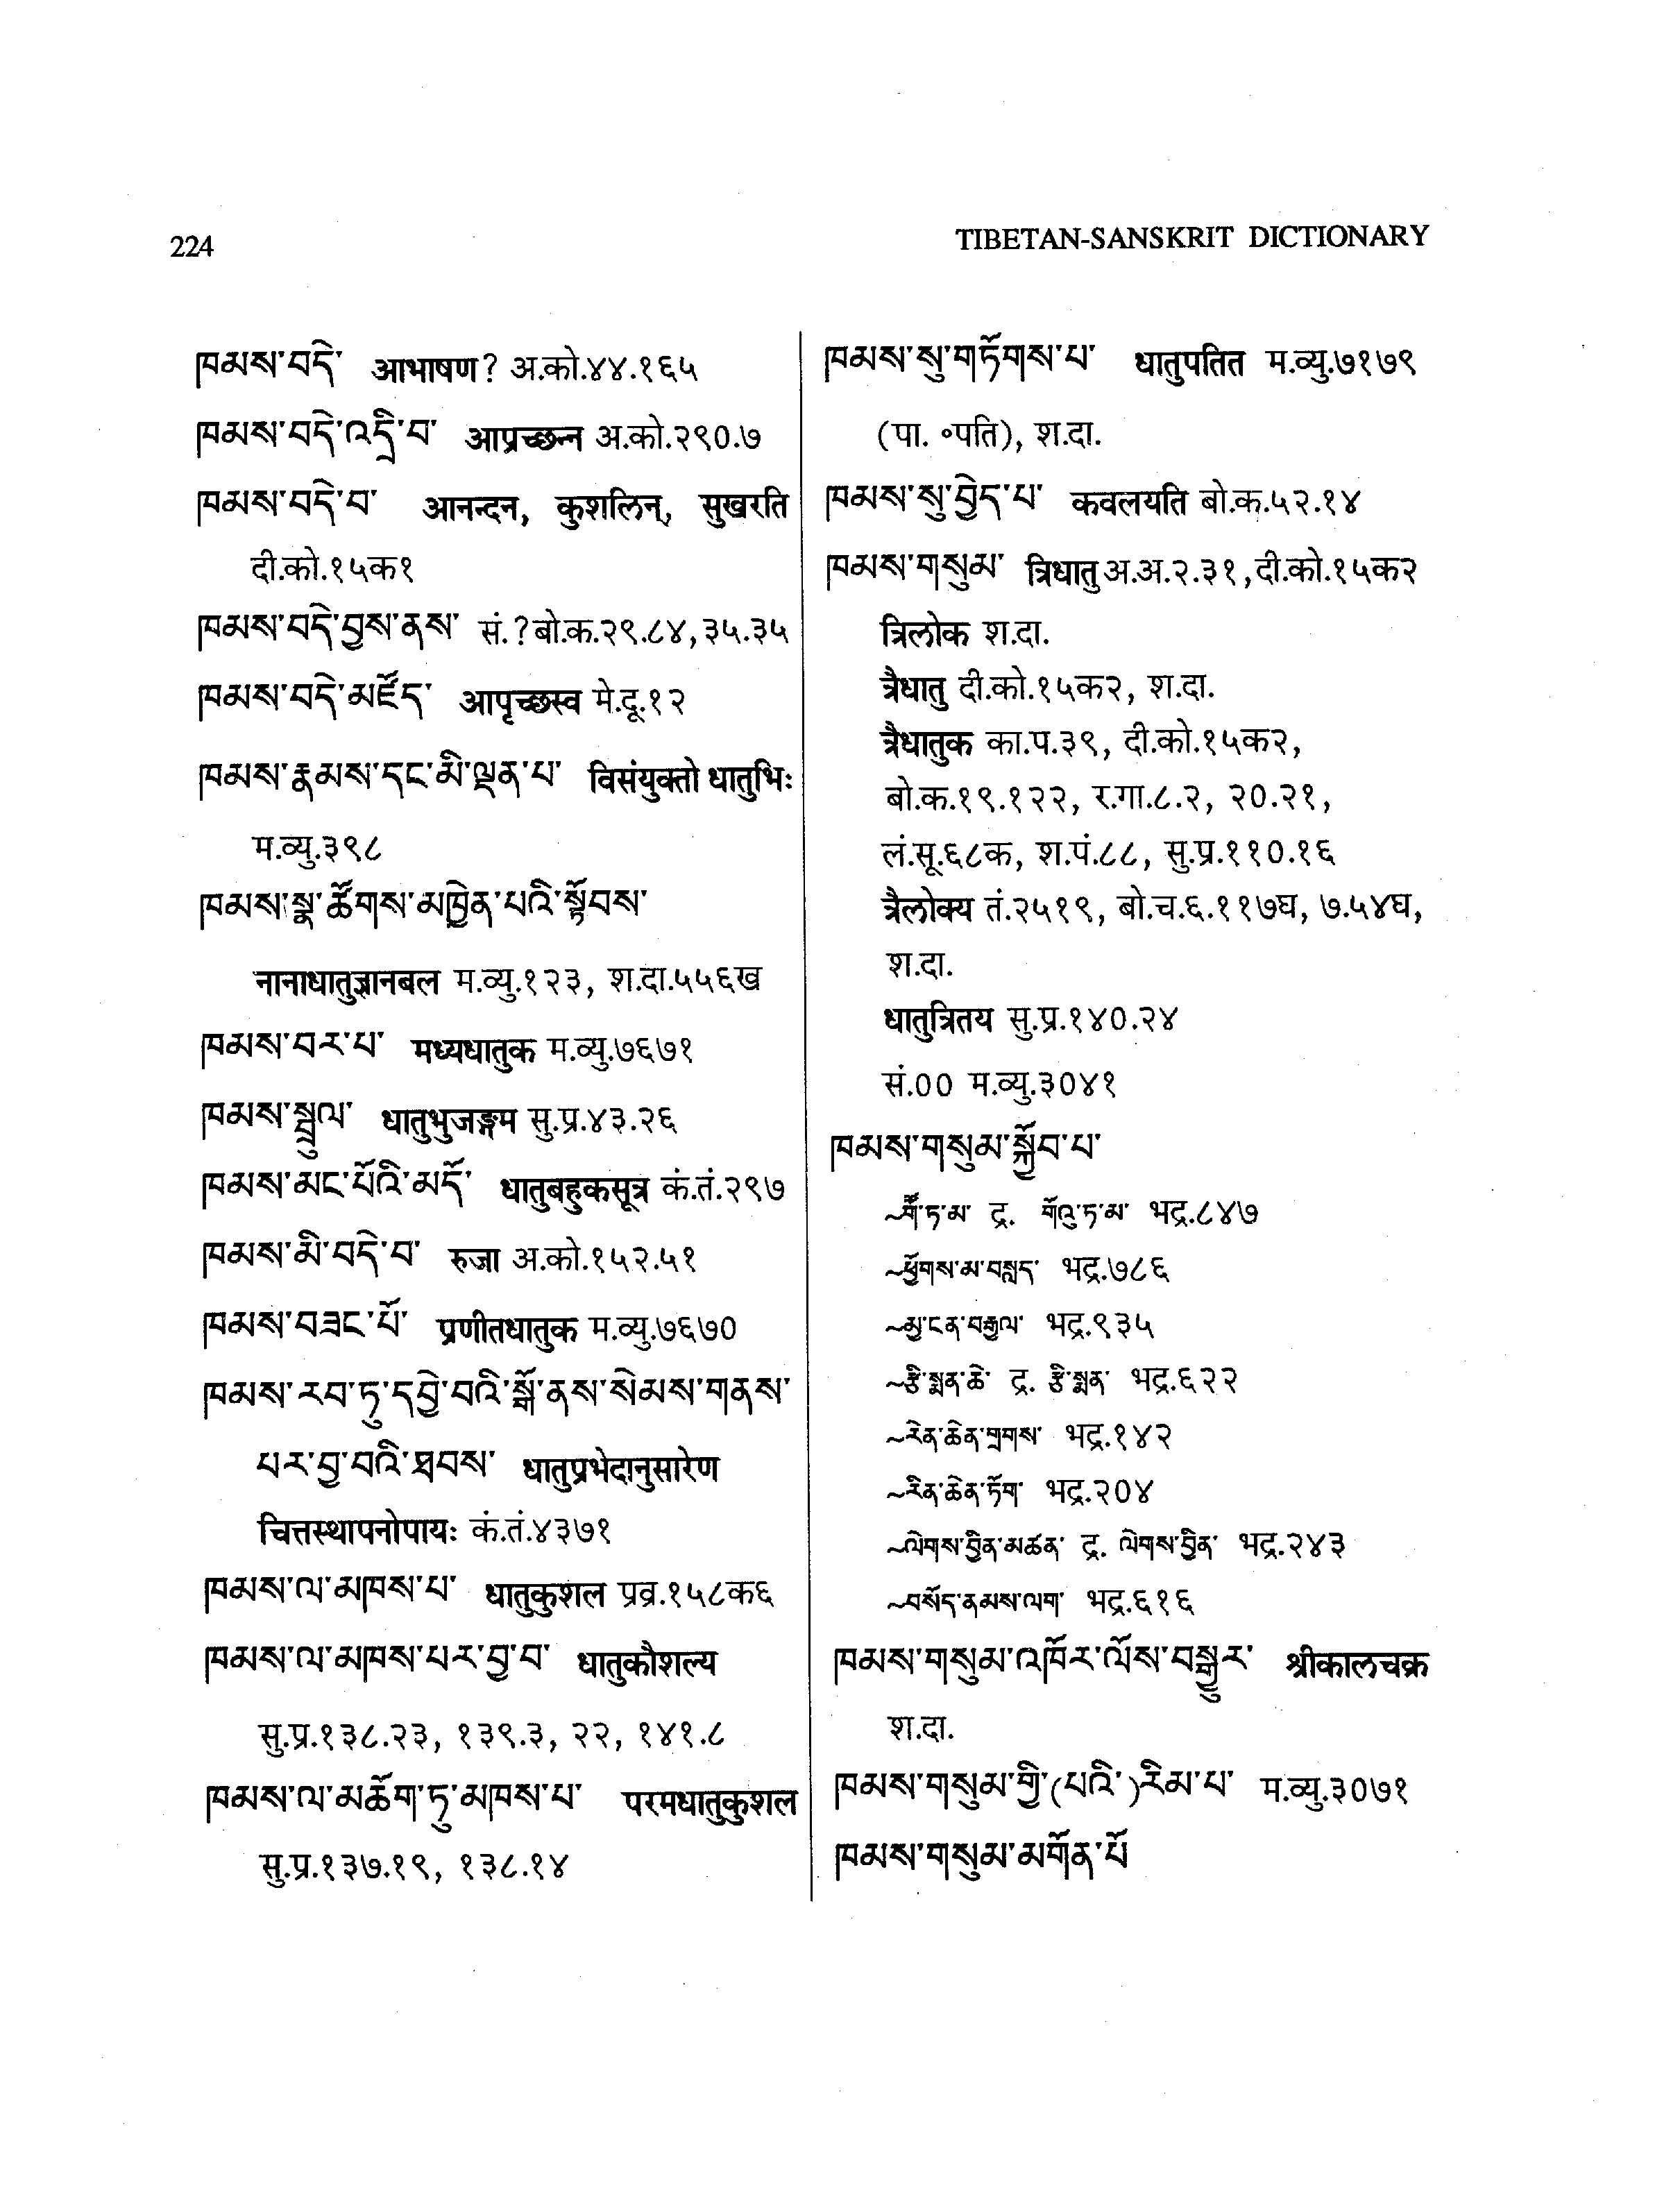 224
TIBETAN-SANSKRIT DICTIONARY
ཁམས་བདེ་ आभाषण? अ.को.४४.१६५
ཁམས་བདེ་འདྲི་བ་ आप्रच्छन्न अ.को.२९०.७
ཁམས་བདེ་བ་ आनन्दन, कुशलिन्, सुखरति
दी.को.१५क१
ཁམས་བདེ་བྱས་ནས་ सं.?बो.क.२९.८४,३५.३५
ཁམས་བདེ་མཛོད་ आपृच्छस्व मे.दू.१२
ཁམས་རྣམས་དང་མི་ལྡན་པ་ विसंयुक्तो धातुभिः
म.व्यु.३९८
ཁམས་སྣ་ཚོགས་མཁྱེན་པའི་སྟོབས་
नानाधातुज्ञानबल म.व्यु.१२३, श.दा.५५६ख
ཁམས་བར་པ་ मध्यधातुक म.व्यु.७६७१
ཁམས་སྦྲུལ་ धातुभुजङ्गम सु.प्र.४३.२६
ཁམས་མང་པོའི་མདོ་ धातुबहुकसूत्र कं.तं.२९७
ཁམས་མི་བདེ་བ་ रुजा अ.को.१५२.५१
ཁམས་བཟང་པོ་ प्रणीतधातुक म.व्यु.७६७०
ཁམས་རབ་ཏུ་དབྱེ་བའི་སྒོ་ནས་སེམས་གནས་
པར་བྱ་བའི་ཐབས་ धातुप्रभेदानुसारेण
चित्तस्थापनोपायः कं.तं.४३७१
ཁམས་ལ་མཁས་པ་ धातुकुशल प्रव्र.१५८क६
ཁམས་ལ་མཁས་པར་བྱ་བ་ धातुकौशल्य
सु.प्र.१३८.२३, १३९.३, २२, १४१.८
ཁམས་ལ་མཆོག་ཏུ་མཁས་པ་ परमधातुकुशल
सु.प्र.१३७.१९, १३८.१४
ཁམས་སུ་གཏོགས་པ་ धातुपतित म.व्यु.७१७९
(पा. ॰पति), श.दा.
ཁམས་སུ་བྱེད་པ་ कवलयति बो.क.५२.१४
ཁམས་གསུམ་ त्रिधातु अ.अ.२.३१,दी.को.१५क२
त्रिलोक श.दा.
त्रैधातु दी.को.१५क२, श.दा.
त्रैधातुक का.प.३९, दी.को.१५क२,
बो.क.१९.१२२, र.गा.८.२, २०.२१,
लं.सू.६८क, श.पं.८८, सु.प्र.११०.१६
त्रैलोक्य तं.२५१९, बो.च.६.११७घ, ७.५४घ,
श.दा.
धातुत्रितय सु.प्र.१४०.२४
सं.00 म.व्यु.३०४१
ཁམས་གསུམ་སྐྱོབ་པ་
~གོཽ་ཏ་མ་ द्र. གོའུ་ཏ་མ་ भद्र.८४७
~ཕྱོགས་མ་བསླད་ भद्र.७८६
~མྱ་ངན་བརྒྱལ་ भद्र.९३५
~རྩི་སྨན་ཆེ་ द्र. རྩི་སྨན་ भद्र.६२२
~རིན་ཆེན་གྲགས་ भद्र.१४२
~རིན་ཆེན་ཏོག་ भद्र.२०४
~ལེགས་བྱིན་མཚན་ द्र. ལེགས་བྱིན་ भद्र.२४३
~བསོད་ནམས་ལག་ भद्र.६१६
ཁམས་གསུམ་འཁོར་ལོས་བསྒྱུར་ श्रीकालचक्र
श.दा.
ཁམས་གསུམ་གྱི་(པའི་)རིམ་པ་ म.व्यु.३०७१
ཁམས་གསུམ་མགོན་པོ